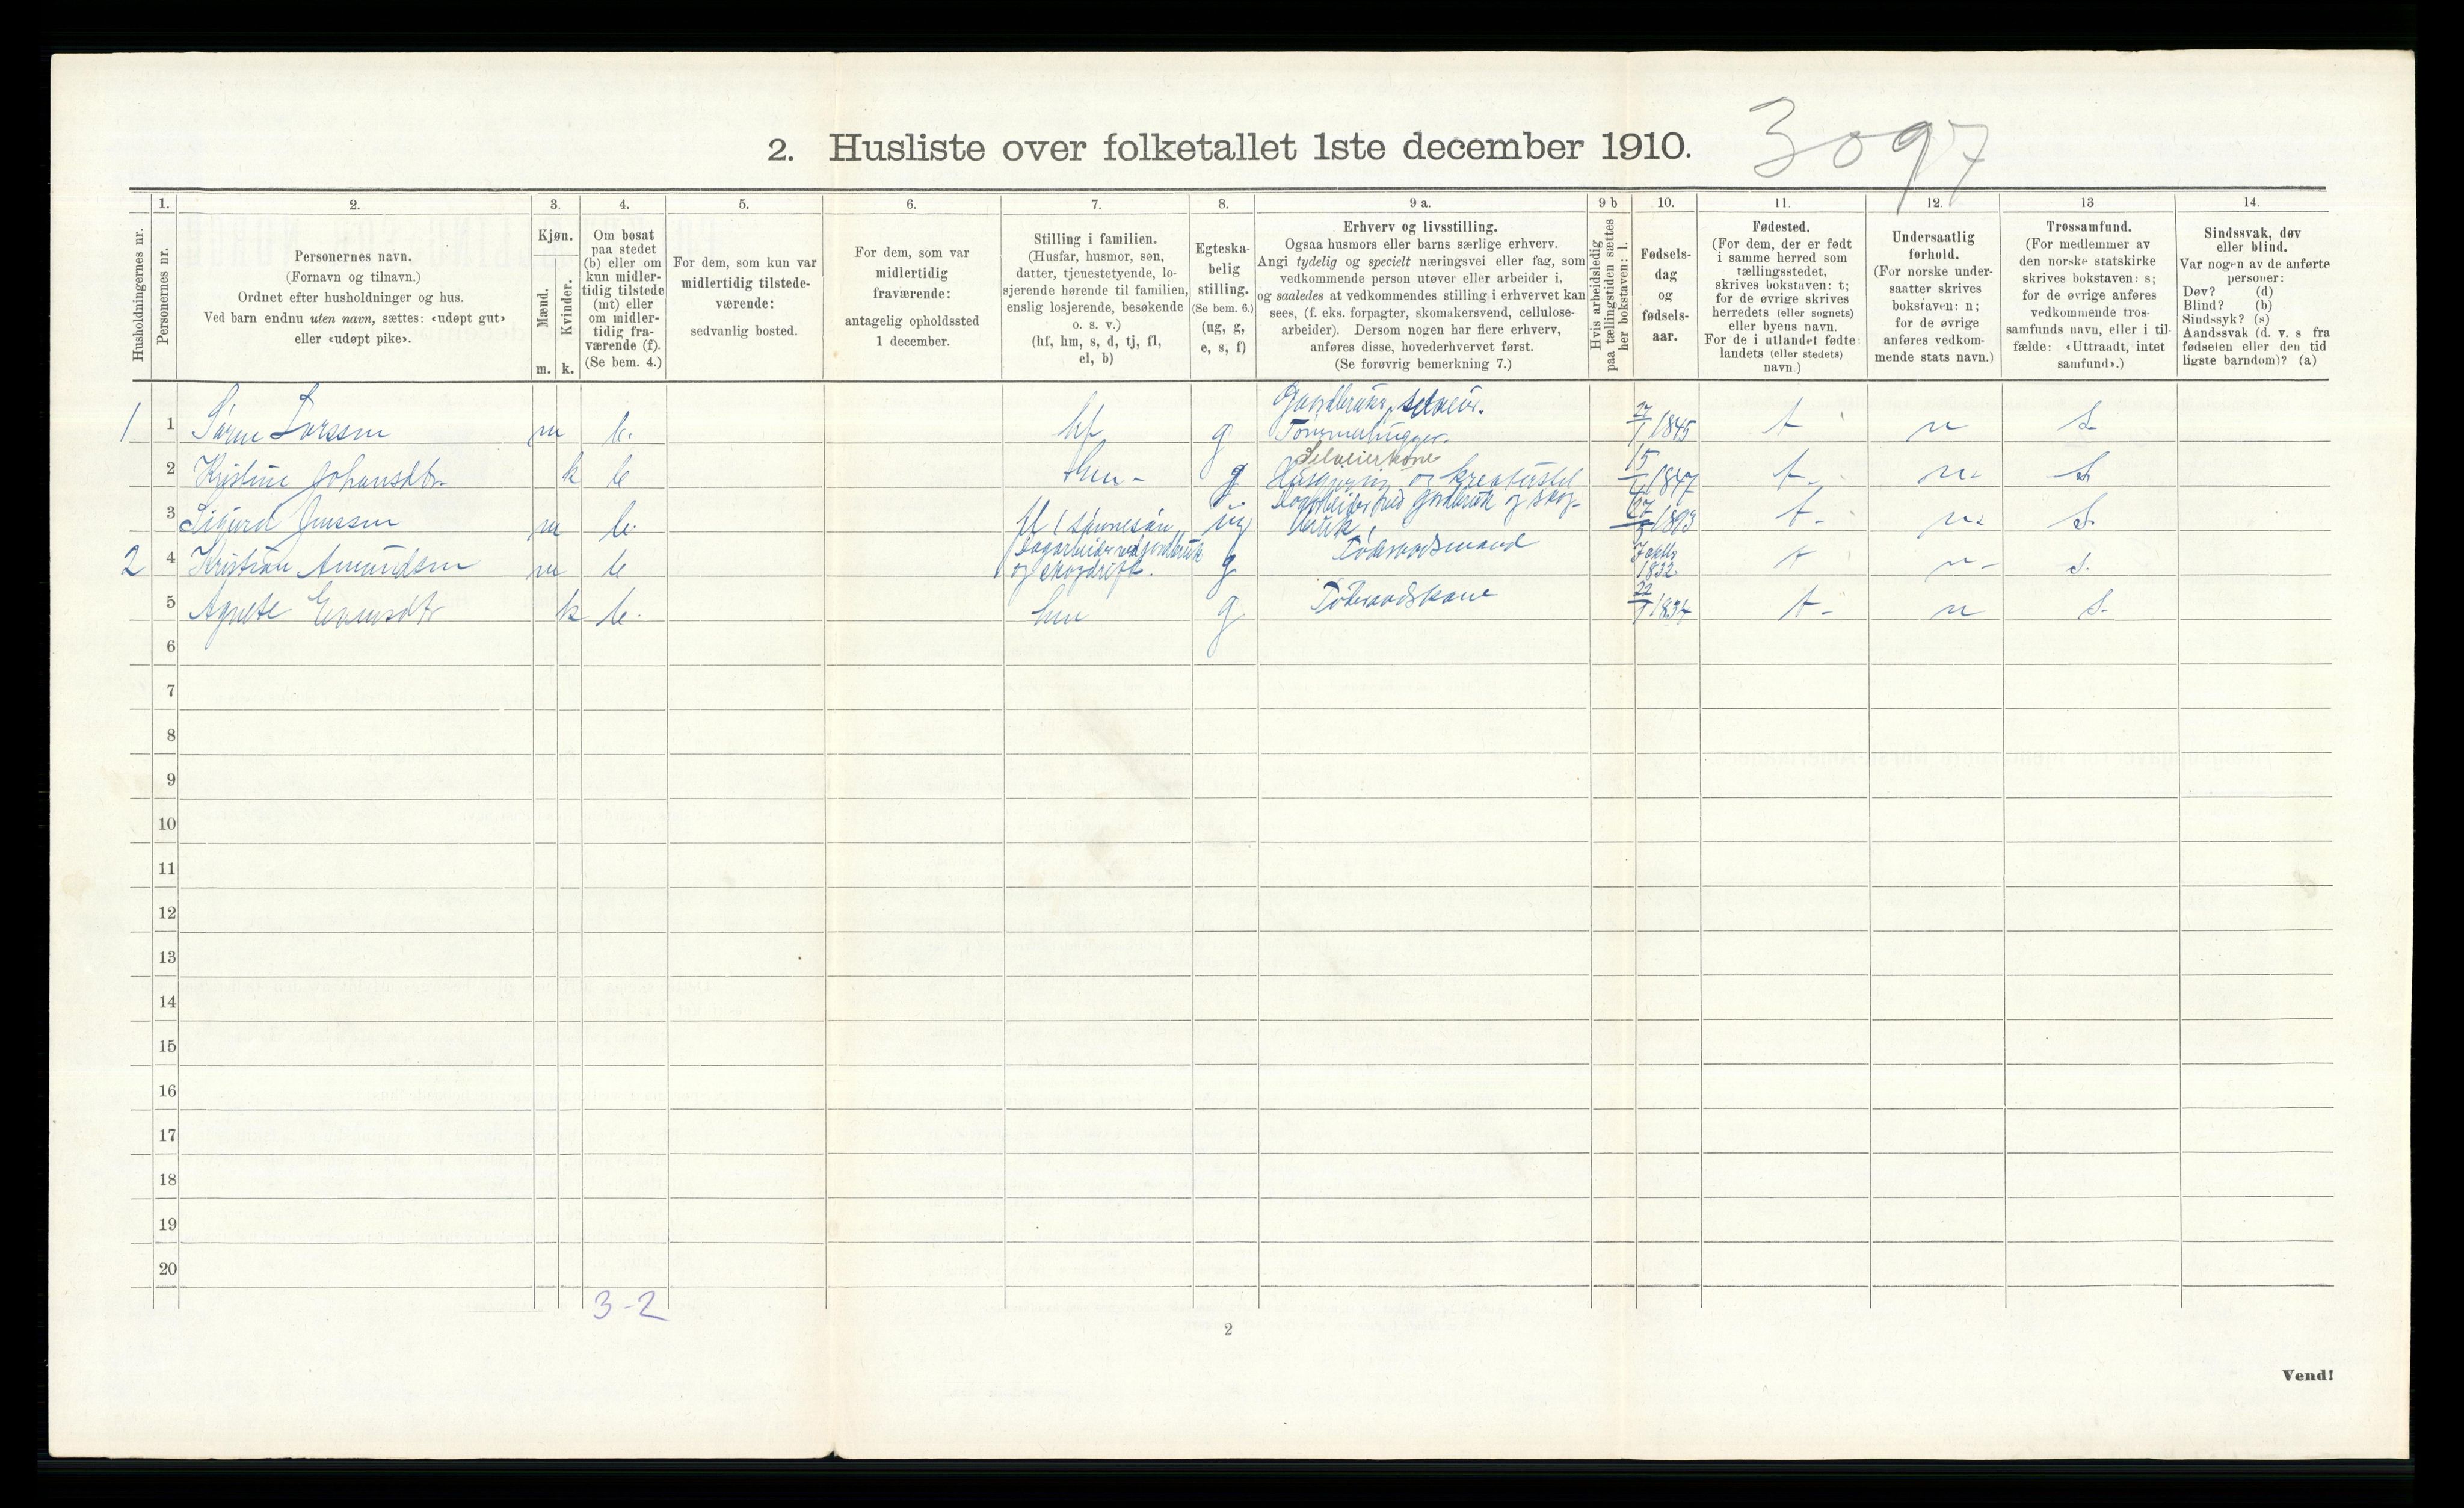 2. Husliste over folketallet 1ste december 1910.
3097
1.
2.
3.
4.
5.
6.
7.
8.
9 a.
9 b
10.
11.
12.
13
14.
Husholdningernes nr.
Personernes nr.
Personernes navn.
(Fornavn og tilnavn.)
Ordnet efter husholdninger og hus.
Ved barn endnu uten navn, sættes: «udøpt gut»
eller «udøpt pike».
Kjøn.
Mænd.
Kvinder.
m. k.
Om bosat
paa stedet
(b) eller om
kun midler-
tidig tilstede
(mt) eller
om midler-
tidig fra-
værende (f).
(Se bem. 4.)
For dem, som kun var
midlertidig tilstede-
værende:
sedvanlig bosted.
For dem, som var
midlertidig
fraværende:
antagelig opholdssted
1 december.
Stilling i familien.
(Husfar, husmor, søn,
datter, tjenestetyende, lo-
sjerende hørende til familien,
enslig losjerende, besøkende
o. s. v.)
(hf, hm, s, d, tj, fl,
el, b)
Egteska-
belig
stilling.
(Se bem. 6.)
(ug, g,
e, s, f)
Erhverv og livsstilling.
Ogsaa husmors eller barns særlige erhverv.
Angi tydelig og specielt næringsvei eller fag, som
vedkommende person utøver eller arbeider i,
og saaledes at vedkommendes stilling i erhvervet kan
sees, (f. eks. forpagter, skomakersvend, cellulose-
arbeider). Dersom nogen har flere erhverv,
anføres disse, hovederhvervet først.
(Se forøvrig bemerkning 7.)
Hvis arbeidsledig
paa tællingstiden sættes
her bokstaven: l.
Fødsels-
dag
og
fødsels-
aar.
Fødested.
(For dem, der er født
i samme herred som
tællingsstedet,
skrives bokstaven: t;
for de øvrige skrives
herredets (eller sognets)
eller byens navn.
For de i utlandet fødte:
landets (eller stedets)
navn.)
Undersaatlig
forhold.
(For norske under-
saatter skrives
bokstaven: n;
for de øvrige
anføres vedkom-
mende stats navn.)
Trossamfund.
(For medlemmer av
den norske statskirke
skrives bokstaven: s;
for de øvrige anføres
vedkommende tros-
samfunds navn, eller i til-
fælde: «Uttraadt, intet
samfund».)
Sindssvak, døv
eller blind.
Var nogen av de anførte
personer:
Døv? (d)
Blind? (b)
Sindssyk? (s)
Aandssvak (d. v. s fra
fødselen eller den tid
ligste barndom)? (a)
Gardbruker, selveier.
1 1 Søren Larssen m b. hf g Tømmerhugger. 27/1 1845 t n s
Selveierkone
2 Kristine Johansdtr. k b hm - g Husgjerning og kreaturstel 15/4 1847 t- n- s
Dagarbeider ved gardbruk og skog-
3 Sigurd Jenssen m b. fl (sønnesøn) ug bruk. 27/5 1893 t- n- s
Dagarbeider ved jordbruk
2 4 Kristian Amundsen m b og skogdrift. g Føderaadsmand 7 oktbr 1832 t n- s.
5 Agnete Evensdtr k b. hm g Føderaadskone 22/1 1834 t- n s.
6
7
8
9
10
11
12
13
14
15
16
17
18
19
20
3-2
2
Vend!